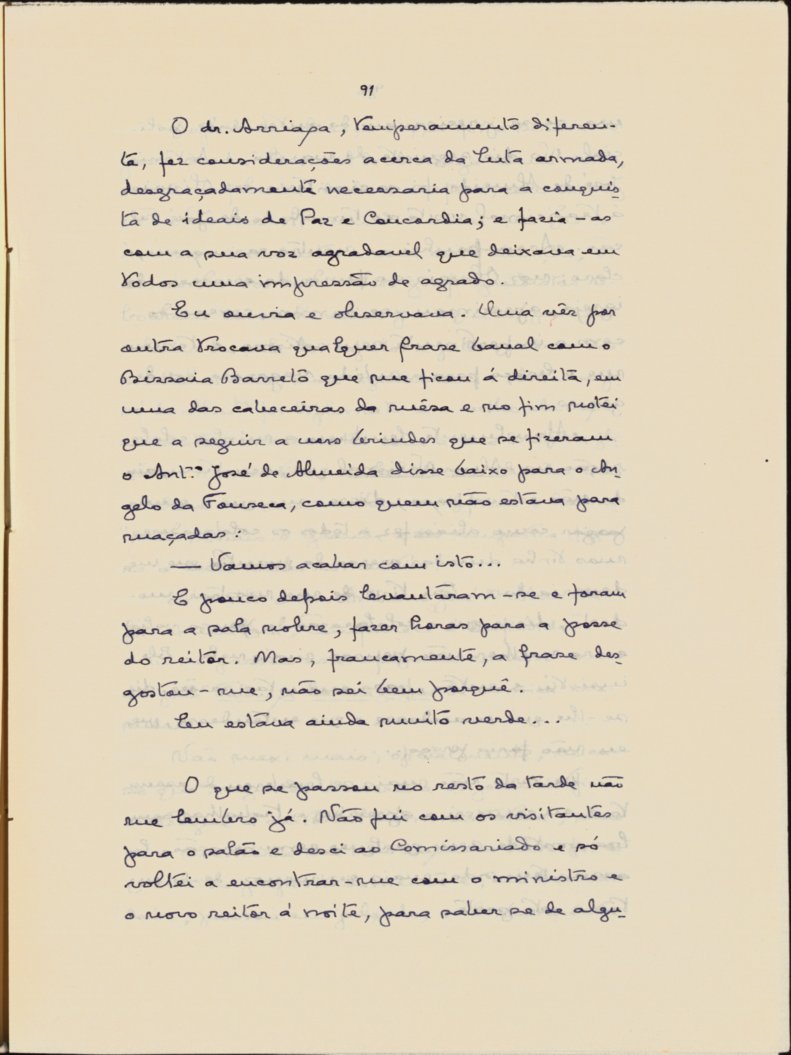 91
O dr. Arriaga, temperamento diferen-
te, fez considerações acerca da luta armada,
desgraçadamente necessaria para a conquis-
ta de ideais de Paz e Concordia; e fazia-as
com a sua voz agradavel que deixava em
todos uma impressão de agrado.
Eu ouvia e observava. Uma vêz por
outra trocava qualquer frase banal com o
Bissaia Barreto que me ficou á direita, em
uma das cabeceiras da mêsa e no fim notei
que a seguir a uns brindes que se fizeram
o Ant.º José de Almeida disse baixo para o An-
gelo da Fonseca, como quem não estava para
maçadas:
— Vamos acabar com isto...
E pouco depois levantaram-se e foram
para a sala nobre, fazer horas para a posse
do reitor. Mas, francamente, a frase des-
gostou-me, não sei bem porquê.
Eu estava ainda muito verde...
O que se passou no resto da tarde não
me lembro já. Não fui com os visitantes
para o salão e desci ao Comissariado e só
voltei a encontrar-me com o ministro e
o novo reitor á noite, para saber se de algu-